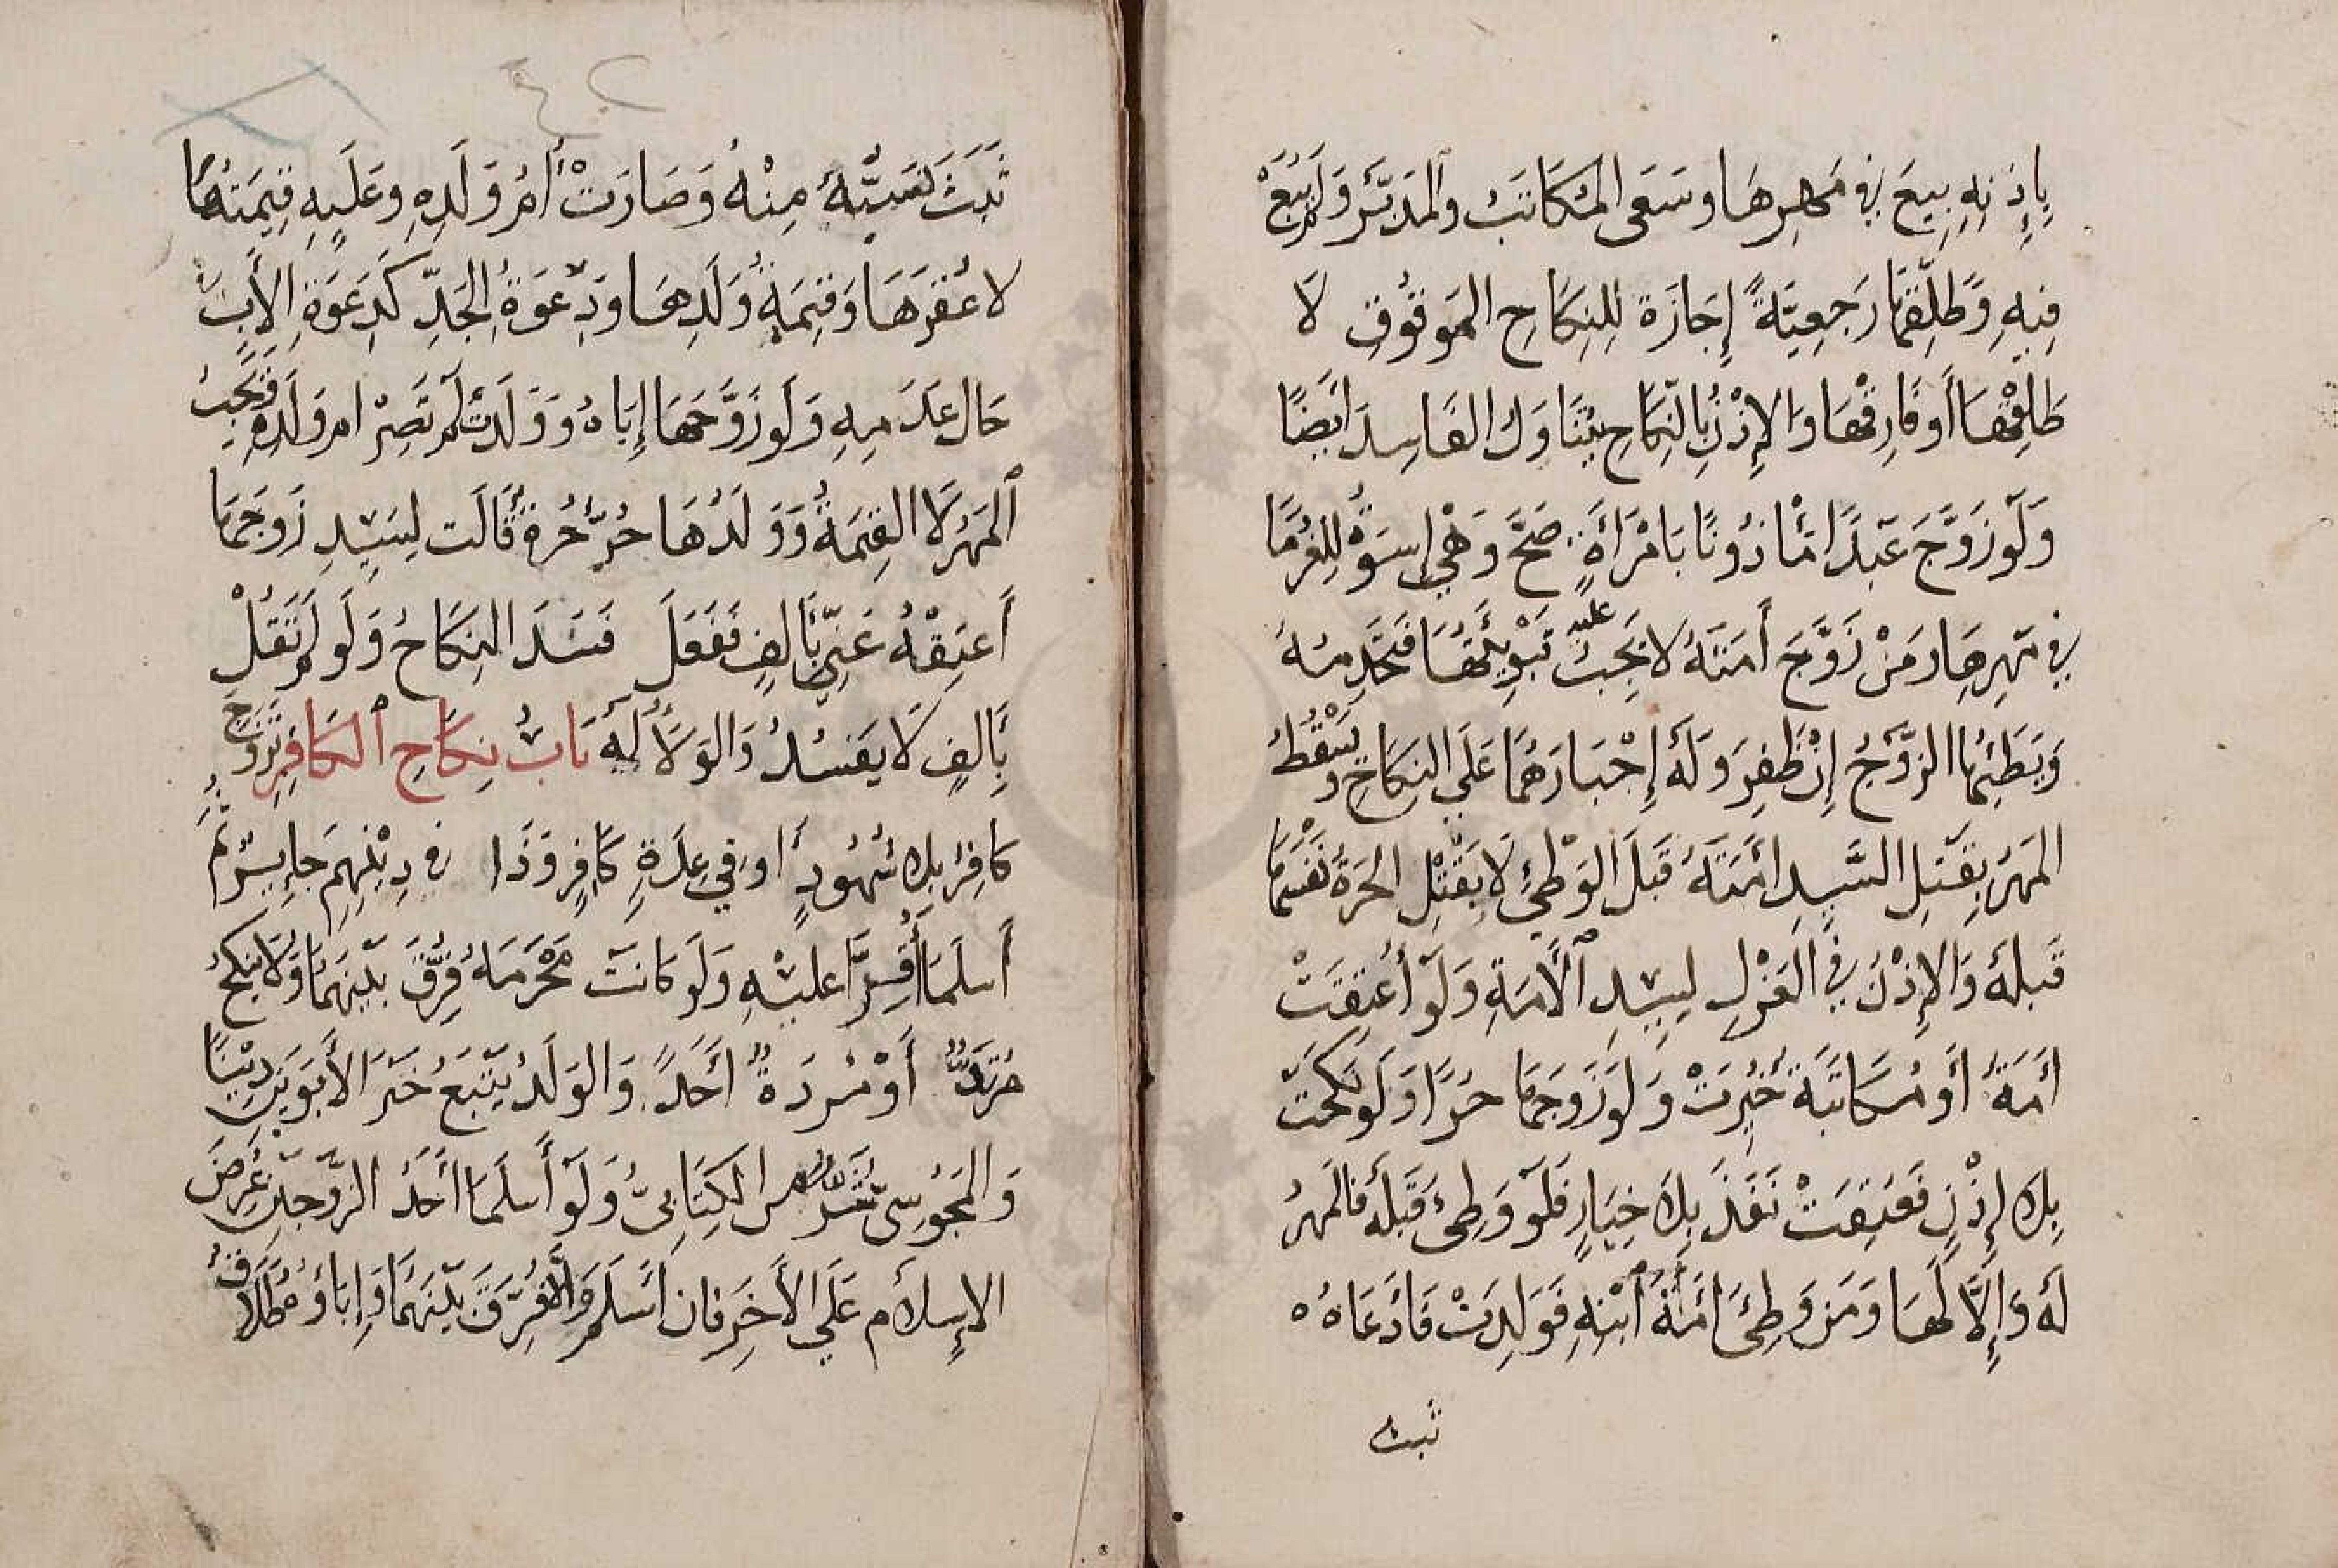 بِإِذنِهِ بِيعَ في مَهرِهَا وسَعَى المكَاتَبُ والمدَبَّر وَلَم يُبَعْ
فِيهِ وَطَلِّقهَا رَجعِيَّةً إِجَازَة لِلنِكَاحِ الموقُوفِ لا
طَلِّقْهَا أو فَارِقْهَا وَالإِذْنُ بِالنِّكَاحِ يتنَاوَل الفَاسِدَ ايَضًا
وَلَو زَوَّجَ عَبدًا مَأذُونًا بَامْرَأةٍ صَحَّ وَهْيَ إِسوَةٌ لِلغُرَمَا
في مَهرِهَا ومَنْ زَوَّجَ أَمَتَهُ لا يَجِبُ عليه تَبْوِيَتُهَا فتَخدِمهُ
وَيَطَئهَا الزَّوْجُ إِنْ ظَفِرَ وَلَهُ إِجْبَارَهُمَا عَلَي النِكَاحِ ويَسْقُطُ
المَهرُ بِقَتلِ السَّيِدِ امَتَهُ قَبلَ الوَطْيِ لا بِقَتْلِ الحُرَةِ نَفْسَهَا
قَبلَهُ وَالإِذْنُ فِي العَزْلِ لِسَيِدِ الأَمَةِ وَلَو أُعتِقَتْ
أمَةٌ أَو مُكَاتَبَة خُيِّرَتْ وَلَو زَوجَهَا حُرًا وَلَو نَكَحَت
بِلا إِذْنٍ فَعَتِقَتْ نَفَذَ بِلا خِيَارٍ فَلَو وَطِئَ قَبلَهُ فَالمَهرُ
لَهُ وَإِلَّا لَهَا وَمَن وَطِئَ امَةُ ابْنِهِ فَوَلِدَتْ فَادَّعَاهُ ه
ثبت
ثَبَتَ نَسَبُهُ مِنْهُ وَصَارَتْ أُم وَلَدِهِ وعَلَيهِ قِيمَتُهَا
لا عُقرَهَا وَقِيمَةُ وَلَدِهَا ودِعوَةُ الجَدِّ كَدِعوَةِ الأَبِ
حَال عدَمِهِ وَلَو زَوَّجَهَا إِيَاهُ وَوَلَدَتْ لَم تَصِرْ ام وَلَدِهِ فَيَجِبُ
المَهرُ لَا القِيمَةُ وَوَلَدُهَا حُرٌّ حُرة قَالَت لِسَيِدِ زَوجِهَا
أَعتِقْهُ عَنِي بَالفٍ فَفَعَلَ فَسَدَ النِكَاحُ وَلَو لَم تَقُلْ
بَالفٍ لَا يَفسُدُ وَالوَلَاُ لَهُ بَابُ نِكَاحِ الكَافِرِ تَزَوجَ
كَافِرٌ بِلا شُهُودٍ أَو فِي عِدَةِ كَافِرٍ وَذَا في دِينِهِم جَايِزٌ ثُمَ
أَسلَمَا أُقِرَّا عليْهِ وَلَو كَانَت مَحْرَمَهُ فُرِّقَ بَينهُمَا وَلَا ينكِحُ
مُرتَدٌّ أَوْ مُردَةٌ أَحَدً وَالوَلَدُ يَتبَعُ خَيرَ الأَبَوَينِ دِيْنًا
وَالمَجُوسِيُّ شَر من الكِتَابِىُّ وَلَو أَسلَمَا أَحَدُ الزَّوجَينِ عُرِضَ
الإِسلام عَلَي الأَخِر فان أسَلَم وَإلَّا فُرِّقَ بَينَهُمَا وَإِبَاؤُهُ طَلَاقٌ